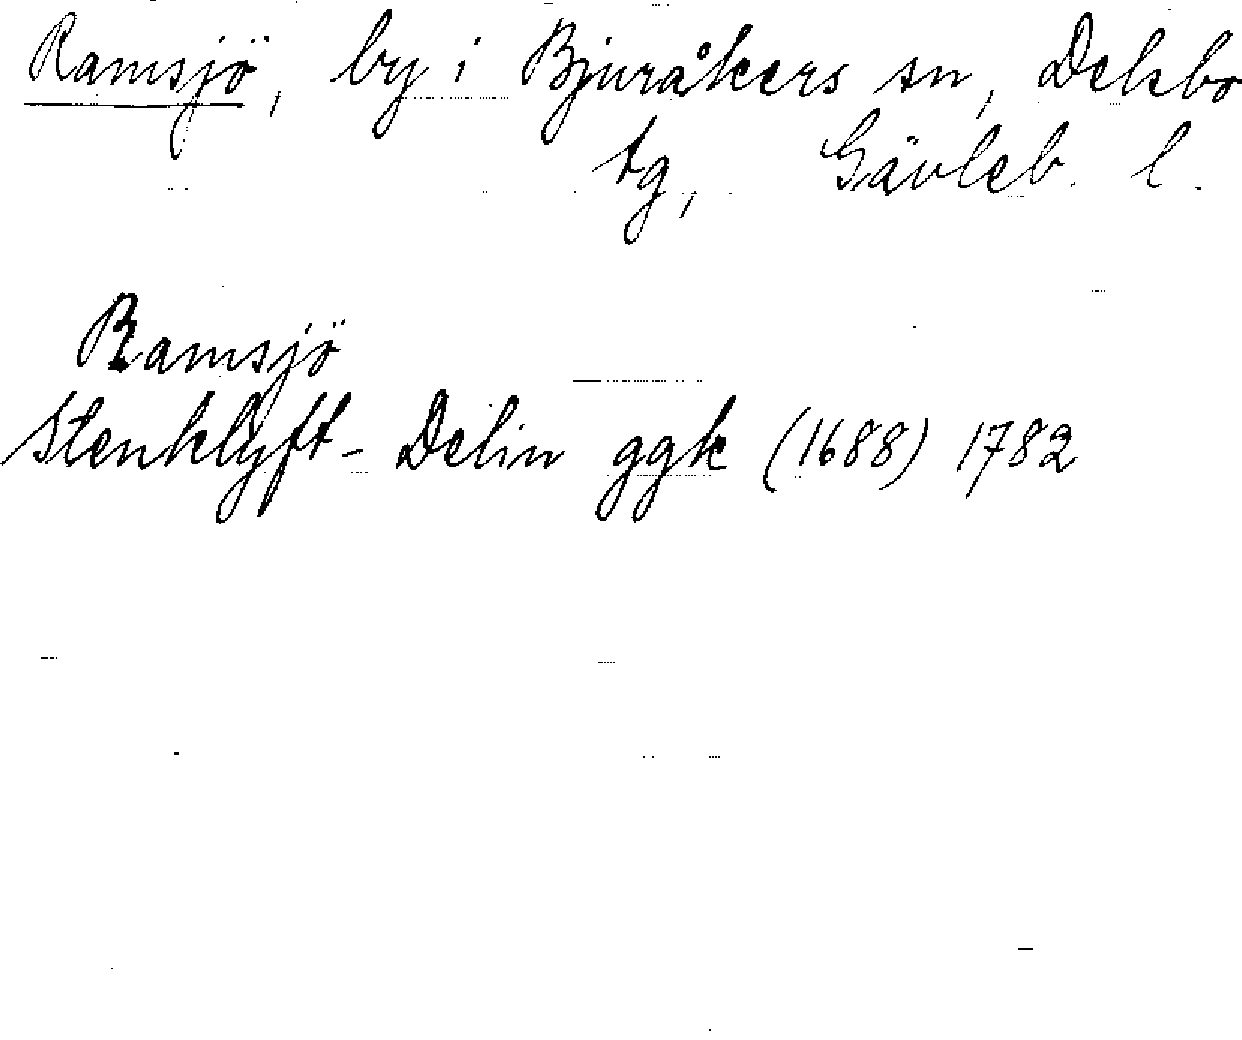 Ramsjö, by i Bjuråkers sn, Delsbo
tg, Gävleb. l.
Ramsjö
Stenklyft- Delin ggk (1688) 1782